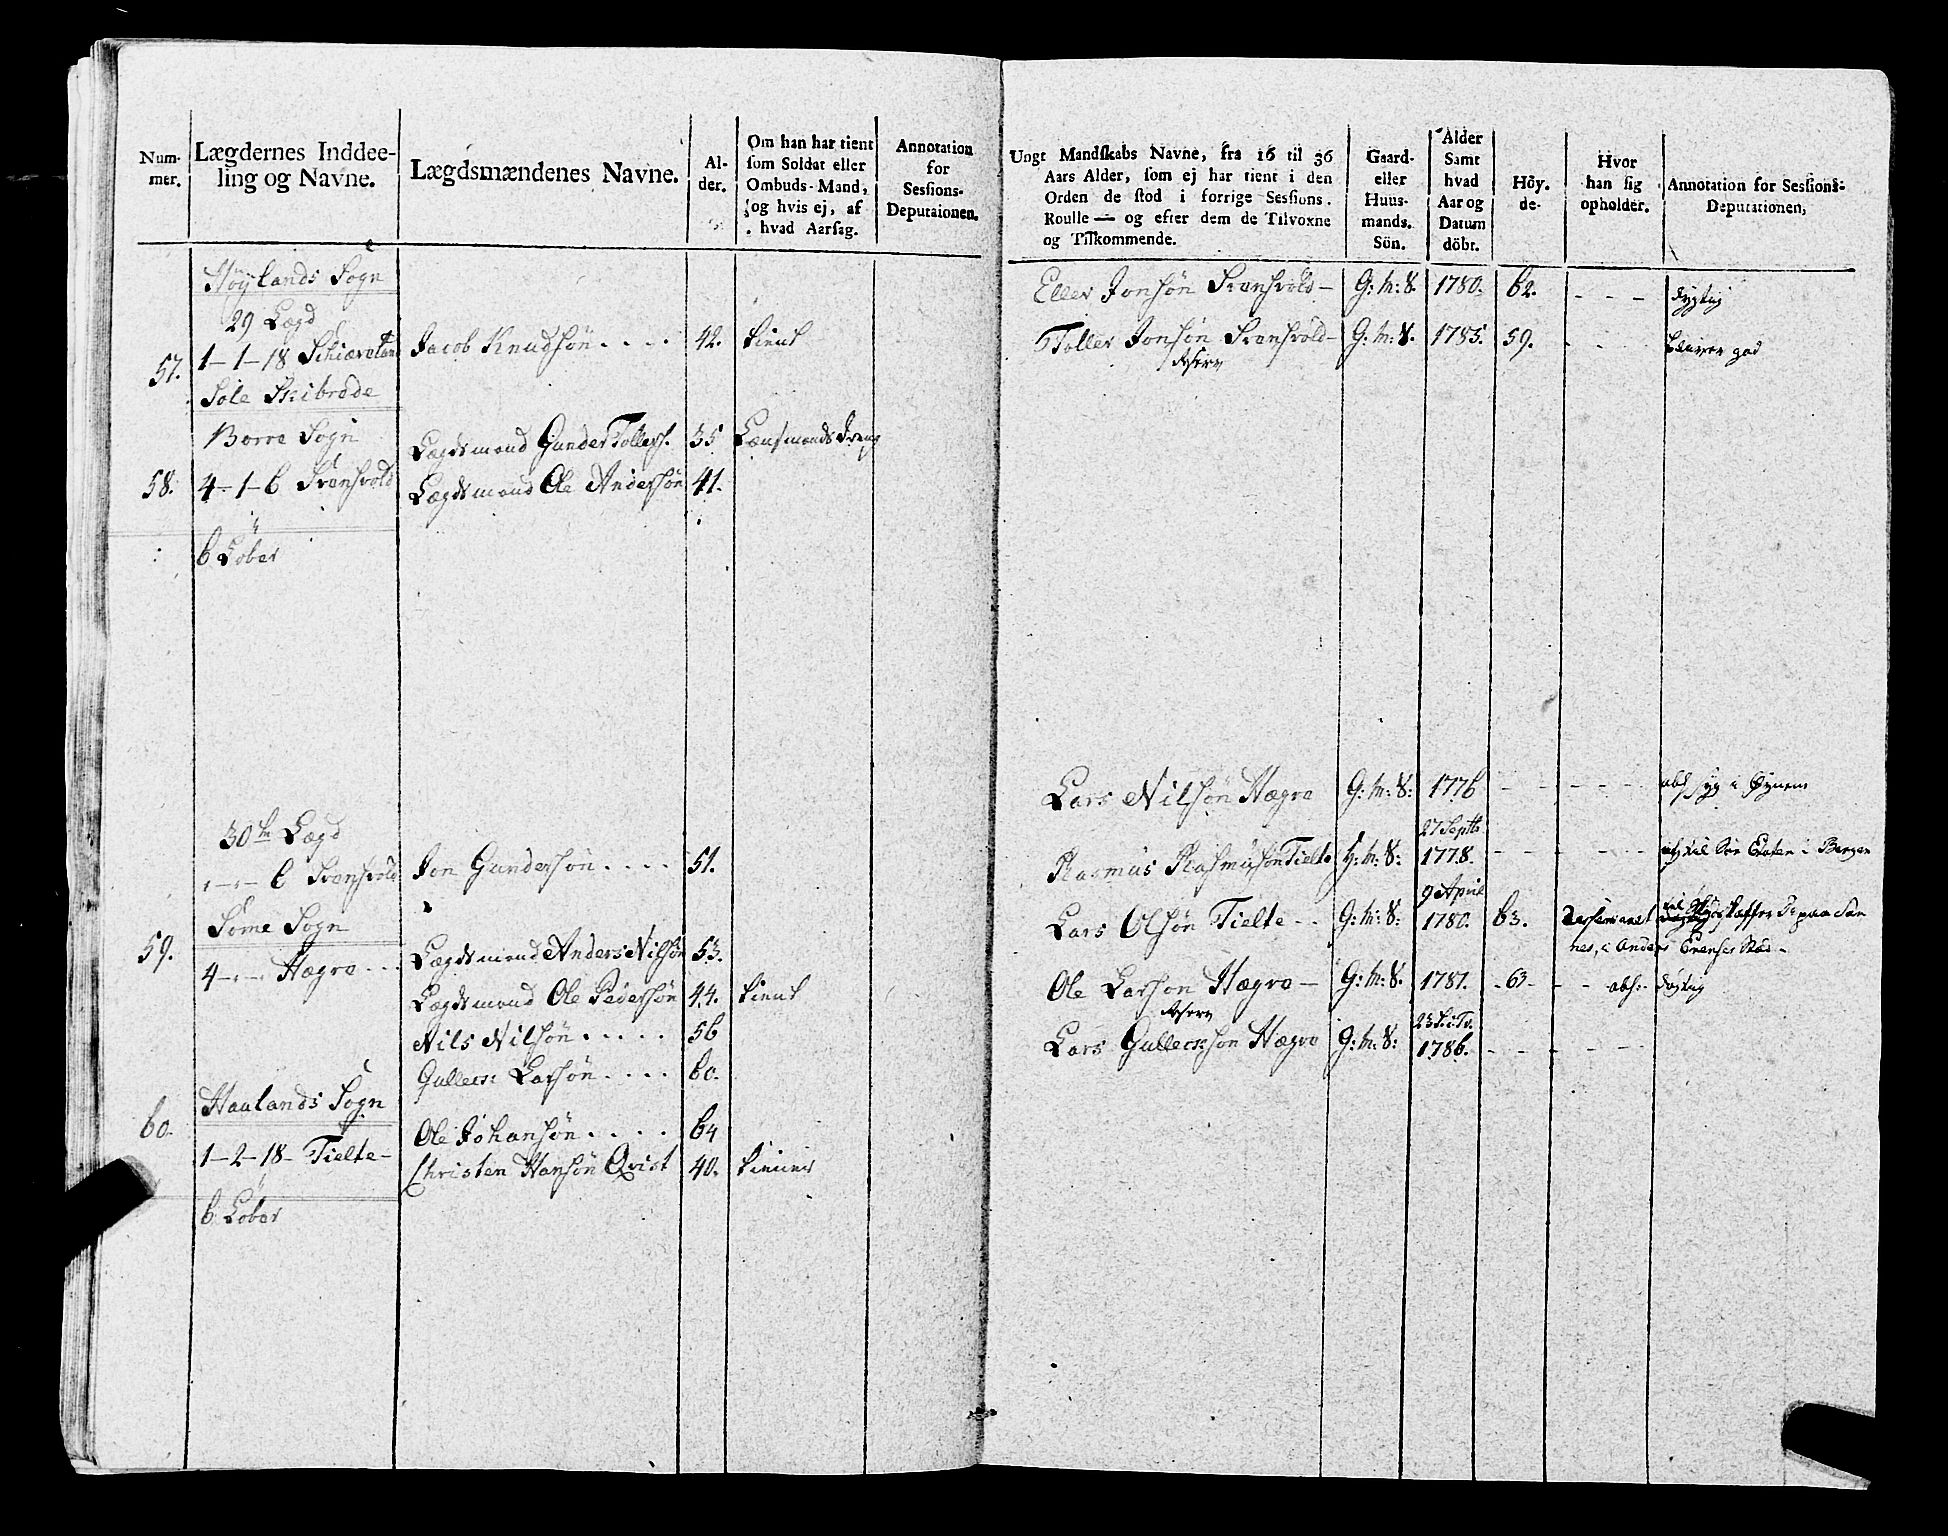 Num-
mer.
Lægdernes Inddee-
ling og Navne.
Lægdsmændenes Navne.
Al-
der.
Om han har tient
som Soldat eller
Ombuds-Mand,
og hvis ej, af
hvad Aarsag.
Annotation
for
Sessions-
Deputaionen.
Høylands Sogn
29 Lægd
57.
1-1-18 Schiæretan
Jacob Knudsøn....
42.
tient
Sole Skibrede
Borre Sogn
Lægdsmand Gunder Tollers.
35
Lænsmands dreng
58.
4-1-6
Lægdsmand Ole Andersøn
41.
6 Løber
30te Lægd
Jon Gundersøn....
51.
Some Sogn
59.
Lægdsmand Anders Nilsøn
53.
4-"-" Hægre
Lægdsmand Ole Pedersøn
44.
tient
Nils Nilsøn.....
56
Gullers: Larsøn....
60.
Haalands Sogn
60.
Ole Johansøn....
64
1-2-18- Tielte-
Christen Hansøn Qvist
40.
tiener
6 Løber
Ungt Mandskabs Navne, fra 16 til 36
Aars Alder, som ej har tient i den
Orden de stod i forrige Sessions.
Roulle — og efter dem de Tilvoxne
og Tilkommende.
Gaard-
eller
Huus-
mands.
Sön.
Alder
Samt
hvad
Aar og
Datum
döbt.
Höy.
de-
Hvor
han sig
opholder.
Annotation for Sessions-
Deputationen,
Eller Jonsøn
G: M: S.
1780.
62.
dygtig
Toller Jonsøn
G: M: S.
1785.
59.
bliver god
Reserv
Lars Nilsøn Hægre
G: M: S:
1776
syg i Øynene
27 Septb
Rasmus Rasmusøn Tielte
H: M: S:
1778.
i Bergen
9 April
Lars Olsøn Tielte
G: M: S:
1780.
63.
Ole Larsøn Hægre
G: M: S.
1781.
63
abs:
dygtig
Reserv
Lars Gullersøn Hægre
G: M: S:
1786.